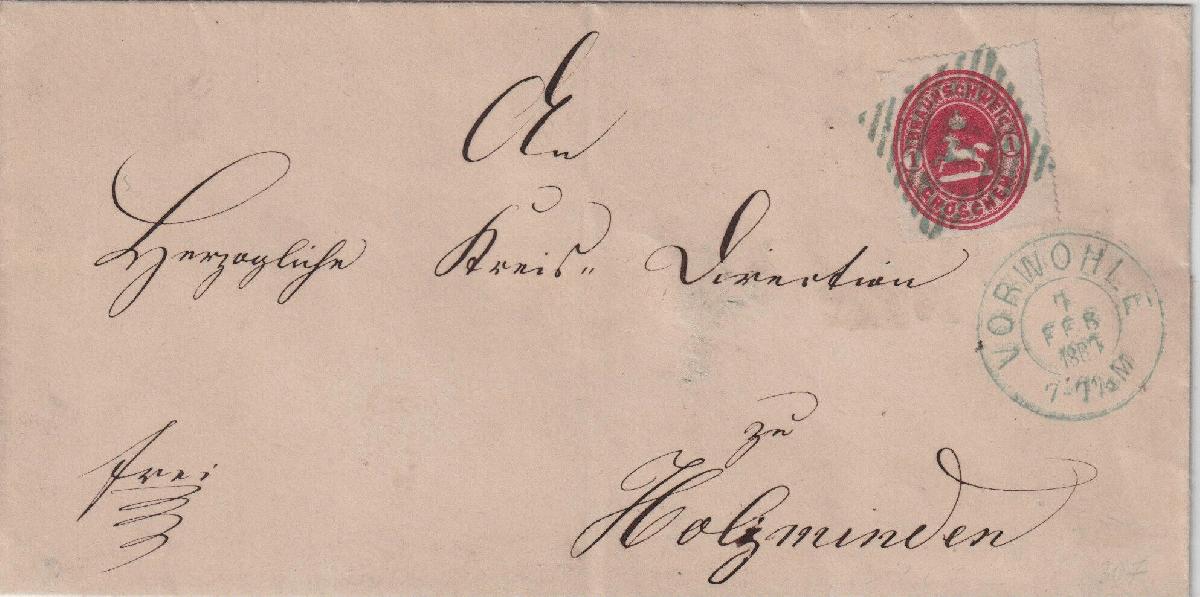 An
BRAUNSCHWEIG
1 1
GROSCHEN
Herzogliche Kreis= Direction
VORWOHLE
7
FEB
1867
7-7½M
zu
frei
Holzminden